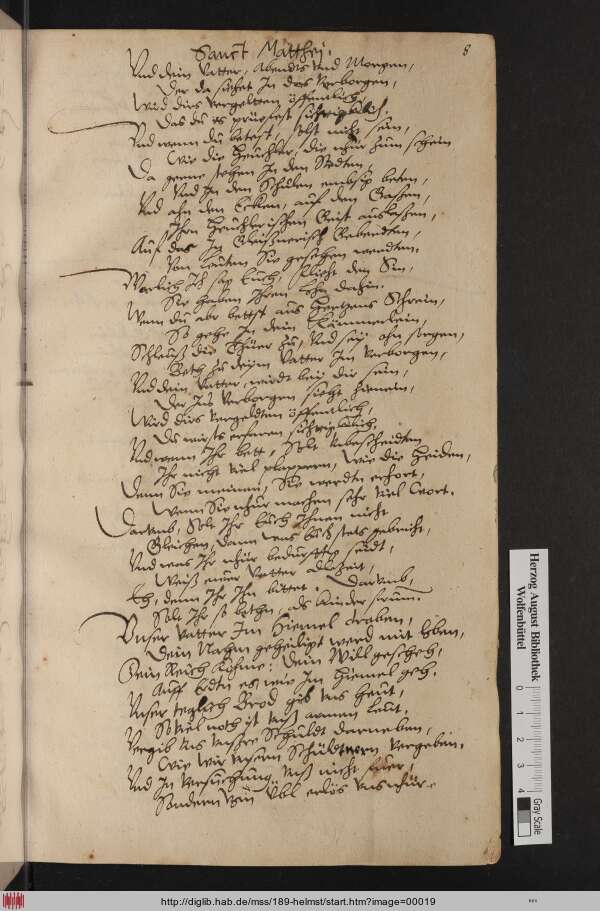 Sanct Matthej.
8
Vnd dein Vatter, Abendts vnd Morgen,
Der da siehet In das Verborgen,
Wird dirs vergeltten öffentlich,
Das du es prüefest
Vnd wenn du betest, solst nicht sein,
Wie die Heuchler, die nhur zum schein
Da gerne stehen In den Stedten,
Vnd In den Schulen embsig beten,
Vnd ahn den Ecken, auf den Gassen,
Ihrn Heuchlerischen Geist auslassen,
Auf das In Gleißnerisch
Von leuten Sie gesehen werdten.
Warlich Ich sag Euch, den Sin,
Sie haben Ihren lohn dahin.
Wenn du abr bettest aus Hertzens Schrein,
So gehe In dein Kämmerlein,
Schleuß die Thüer zu, Vnd sey ohn sorgen,
Beth zu deijm Vatter Im Verborgen,
Vnd dein Vatter, wirdt bey dir sein,
Der Ins Verborgen siehet
Wird dirs vergeldten öffentlich,
Du wirsts erfaren
Vnd wenn Ihr bett, Solt Vnbescheidten
Ihr nicht viel plappern, Wie die Heiden,
Denn Sie meinen, Sie werdtn erhort,
Wenn Sie nhur machen sehr viel Wort.
Darumb, Solt Ihr Euch Ihnen nicht
Gleichen, dann was Euch stets gebricht,
Vnd was Ihr nhur bedürfftig seidt,
Weiß euwer Vatter allezeit,
Eh, denn Ihr Ihn bittet. Darumb,
Solt Ihr so bethn, als Kinder frum.
Vnser Vatter Im Himel droben,
Dein Nahm geheiligt werd mit loben,
Dein Reich Kohme: Dein Will gescheh,
Auff Erdtn es wie Im Himel geh.
Vnser teglich Brod gib vns heut,
So viel noth ist vnß armen leut,
Vergib vns vnsere Schuldt darneben,
Wie wir vnsern Schuldtnern vergeben.
Vnd In Versuchung vnß nicht fuer,
Sondern Vom Vbl erlös vns nhur
Herzog August Bibliothek
Wolfenbüttel
0 1 2 3 4
Gray Scale
http://diglib.hab.de/mss/189-helmst/start.htm?image=00019